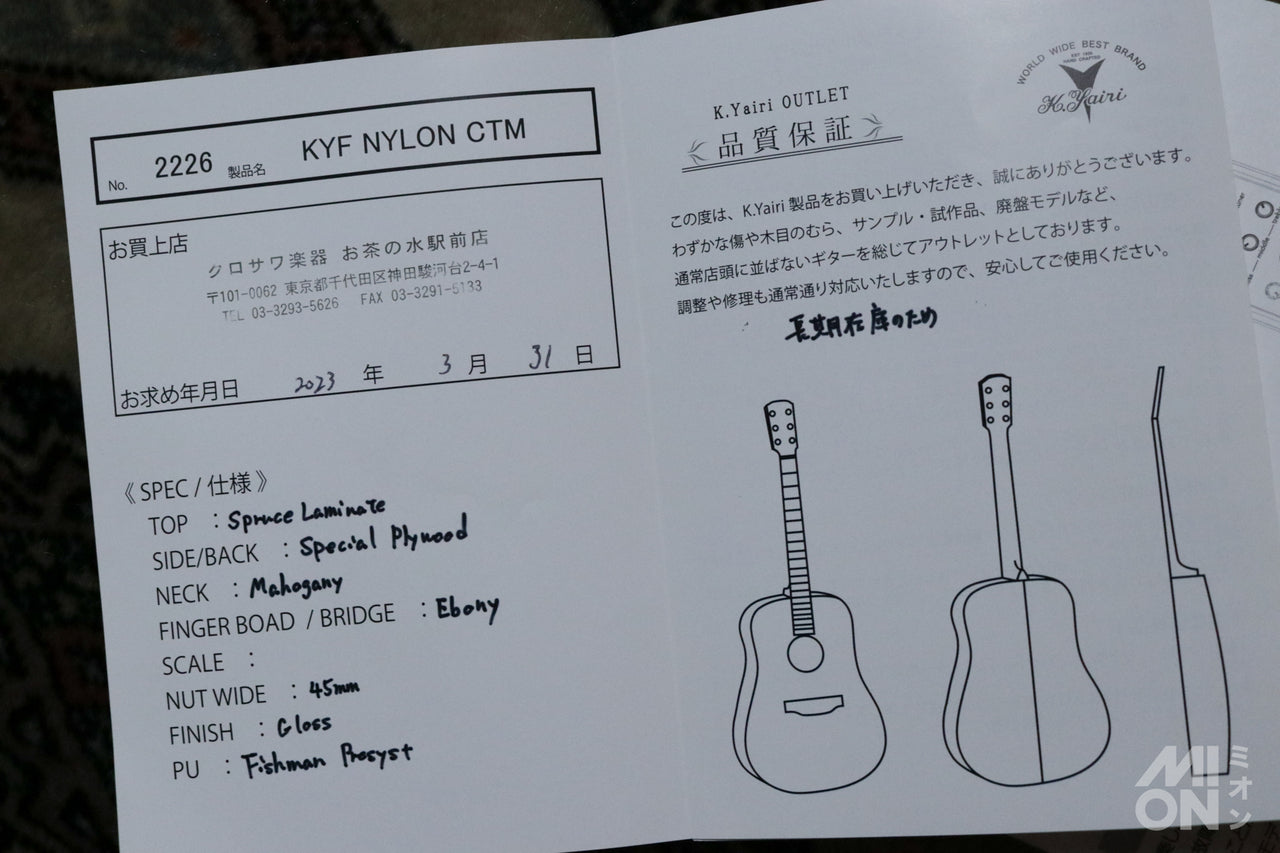 No. 2226 製品名 KYF NYLON CTM
お買上店
クロサワ楽器 お茶の水駅前店
〒101-0062 東京都千代田区神田駿河台2-4-1
TEL 03-3293-5626 FAX 03-3291-5133
お求め年月日 2023 年 3 月 31 日
《 SPEC / 仕様 》
TOP : Spruce Laminate
SIDE/BACK : Special Plywood
NECK : Mahogany
FINGER BOAD / BRIDGE : Ebony
SCALE :
NUT WIDE : 45mm
FINISH : Gloss
PU : Fishman Presyst
WORLD WIDE BEST BRAND
EST 1935
HAND CRAFTED
K.Yairi
K.Yairi OUTLET
品質保証
この度は、K.Yairi 製品をお買い上げいただき、誠にありがとうございます。
わずかな傷や木目のむら、サンプル・試作品、廃盤モデルなど、
通常店頭に並ばないギターを総じてアウトレットとしております。
調整や修理も通常通り対応いたしますので、安心してご使用ください。
長期在庫のため
MION
ミオン